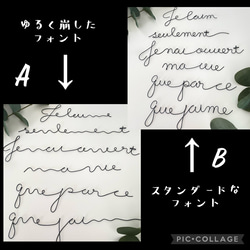 ゆるく崩した
フォント
A
Je l'aim
seulement
Je n'ai ouvert
ma vie
que parce
que j'aime
B
スタンダードな
フォント
Je l'aime
seulement
Je n'ai ouvert
ma vie
que parce
que j'aim
PIC•COLLAGE